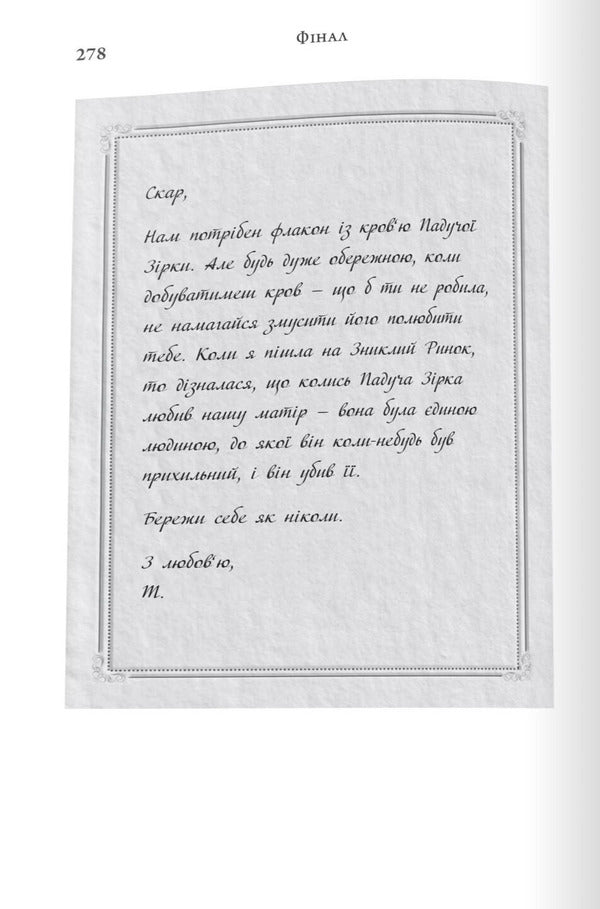 278
Фінал
Скар,
Нам потрібен флакон із кров'ю Падучої
Зірки. Але будь дуже обережною, коли
добуватимеш кров — що б ти не робила,
не намагайся змусити його полюбити
тебе. Коли я пішла на Зниклий Ринок,
то дізналася, що колись Падуча Зірка
любив нашу матір — вона була єдиною
людиною, до якої він коли-небудь був
прихильний, і він убив її.
Бережи себе як ніколи.
З любов'ю,
Т.